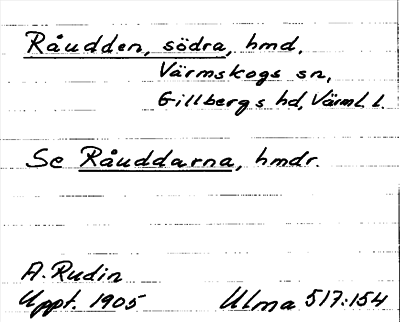 Råudden, södra, hmd,
Värmskogs sn,
Gillbergs hd, Värml. l.
Se Råuddarna, hmdr.
A. Rudin
Uppt. 1905 Ulma 517:154